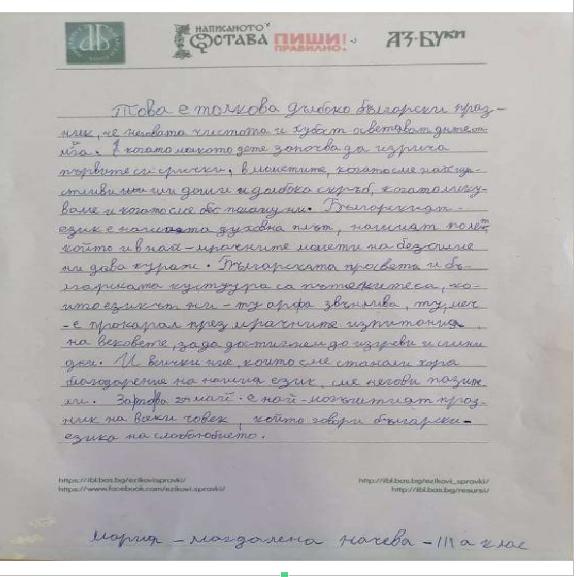 НАПИСАНОТО
ОСТАВА ПИШИ
ПРАВИЛНО! АЗ-БУКИ
Това е толкова дълбоко български праз-
ник, че неговата чистота и хубост осветяват дните
И когато малкото дете започва да изрича
първите си срички, в моментите, когато сме най-ща-
стливи или ни дойде дълбока скръб, когато лику-
ваме и когато сме безпомощни. Българският
език е нашата духовна плът, нашият полет,
който и в най-мрачните моменти на безсилие
ни дава кураж. Българската просвета и бъ-
лгарската култура са пътеките са, ко-
ито езикът ни - ту арфа звънлива, ту меч
-е прокарал през мрачните изпитания
на вековете, за да достигнем до изгреви и
дни. И всички ние, които сме станали хора
благодарение на нашия език, сме негови пазите-
ли. Затова 24 май е най-могъщият праз-
ник на всеки човек, който говори български-
езика на свободието.
https://ibl.bas.bg/ezikovispravki/ https://ibl.bas.bg/ezikovi_spravki/
https://www.facebook.com/ezikovi.spravki/ http://ibl.bas.bg/resursi/
Мария - Магдалена Начева - III а клас